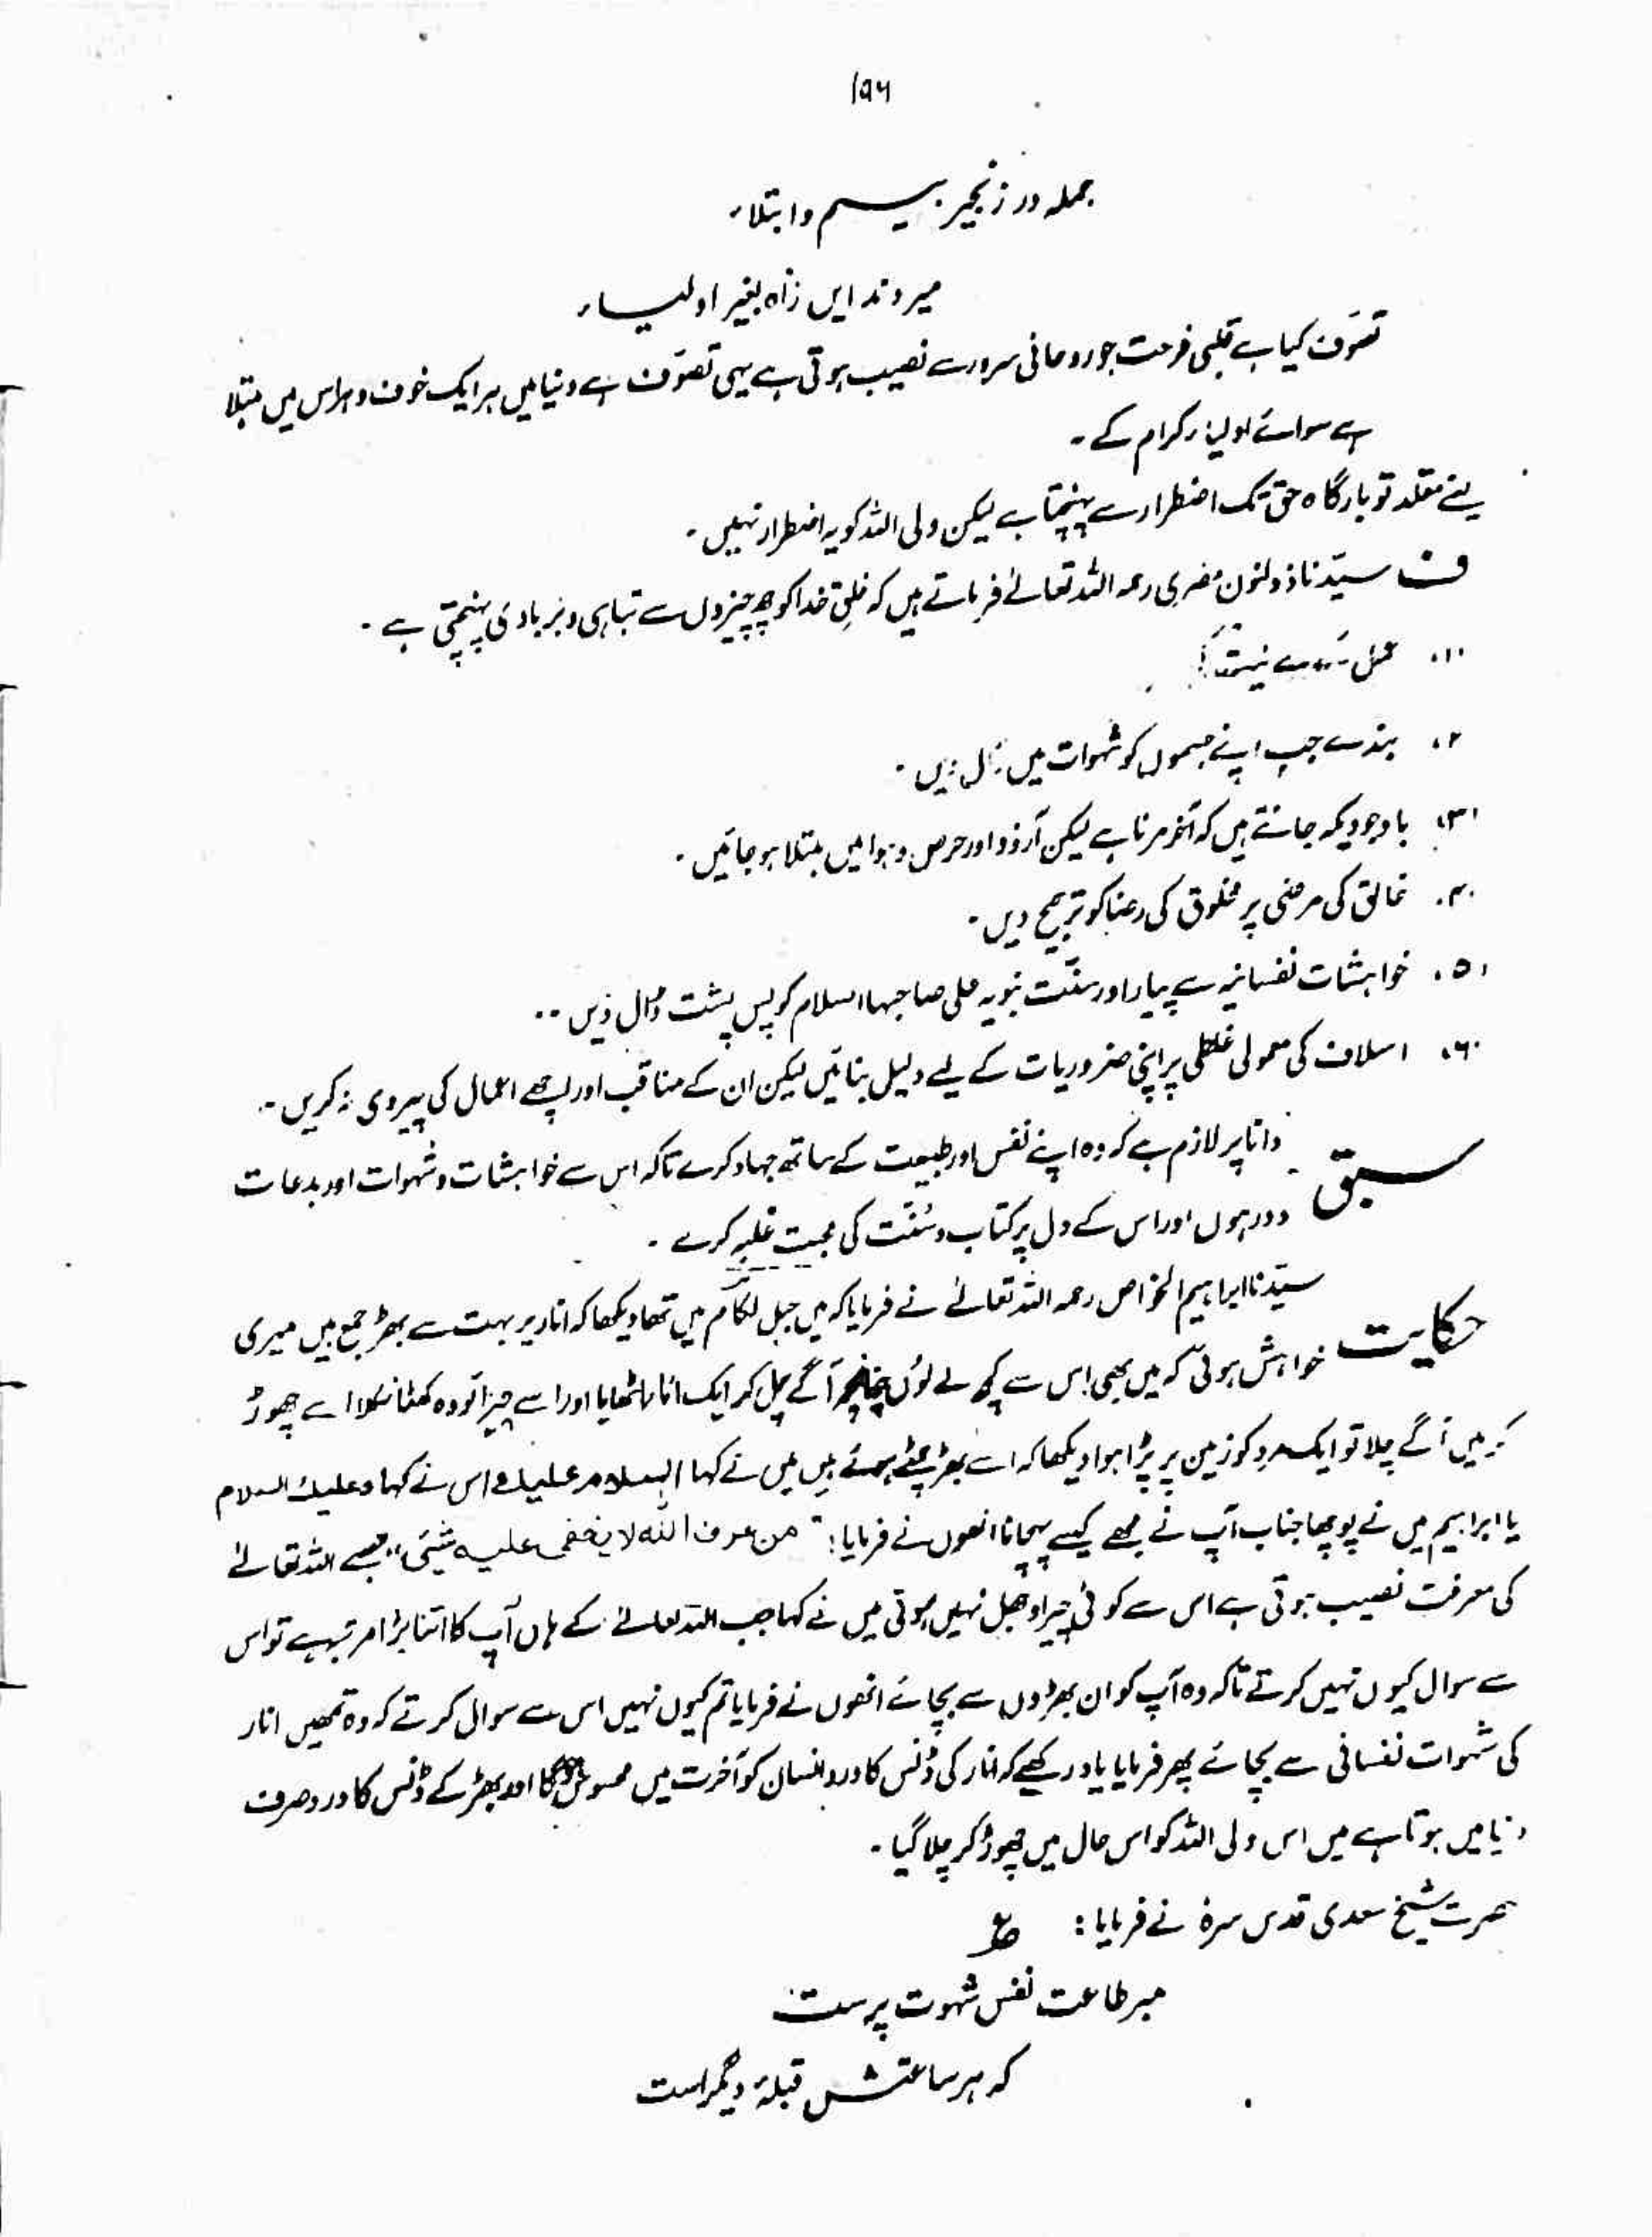 ۱۹۶
جملہ در زنجیر بیسم و ابتلاء
میروند ایں راہ بغیر اولیاء
تصوف کیا ہے قلبی فرحت جو روحانی سرور سے نصیب ہوتی ہے یہی تصوّف ہے دنیا میں ہر ایک خوف و ہراس میں مبتلا
ہے سوائے اولیاء کرام کے۔
یعنے مقلد تو بارگاہ حق تک اضطرار سے پہنچتا ہے لیکن ولی اللہ کو یہ اضطرار نہیں۔
ف سیّدنا ذوالنون مصری رحمہ اللہ تعالےٰ فرماتے ہیں کہ خلقِ خدا کو چھ چیزوں سے تباہی و بربادی پہنچتی ہے۔
۱۔ عمل سے نیت
۲۔ بندے جب اپنے جسموں کو شہوات میں ڈال دیں۔
۳۔ باوجودیکہ جانتے ہیں کہ آخر مرنا ہے لیکن آرزو اور حرص و ہوا میں مبتلا ہو جائیں۔
۴۔ خالق کی مرضی پر مخلوق کی رضا کو ترجیح دیں۔
۵۔ خواہشات نفسانیہ سے پیار اور سنّت نبویہ علی صاحبہا السلام کو پس پشت ڈال دیں۔
۶۔ اسلاف کی معمولی غلطی پر اپنی ضروریات کے لیے دلیل بنائیں لیکن ان کے مناقب اور اچھے اعمال کی پیروی نہ کریں۔
سبق دانا پر لازم ہے کہ وہ اپنے نفس اور طبیعت کے ساتھ جہاد کرے تاکہ اس سے خواہشات و شہوات اور بدعات
دور ہوں اور اس کے دل پر کتاب و سُنّت کی محبت غلبہ کرے۔
حکایت سیّدنا ابراہیم الخواص رحمہ اللہ تعالےٰ نے فرمایا کہ میں جبل لکام میں تھا دیکھا کہ انار پر بہت سے بھڑ جمع ہیں میری
خواہش ہوئی کہ میں بھی اس سے کچھ لے لوں چنانچہ آگے چل کر ایک انار اٹھایا اور اسے چیرا تو وہ کھٹا نکلا اسے چھوڑ
کر میں آگے چلا تو ایک مرد کو زمین پر پڑا ہوا دیکھا کہ اسے بھڑ چمٹے ہوئے ہیں میں نے کہا السلام علیک اس نے کہا وعلیک السلام
یا ابراہیم میں نے پوچھا جناب آپ نے مجھے کیسے پہچانا انھوں نے فرمایا: "من عرف اللہ لا یخفی علیہ شئی" جسے اللہ تعالےٰ
کی معرفت نصیب ہوتی ہے اس سے کوئی چیز اوجھل نہیں ہوتی میں نے کہا جب اللہ تعالےٰ کے ہاں آپ کا اتنا بڑا مرتبہ ہے تو اس
سے سوال کیوں نہیں کرتے تاکہ وہ آپ کو ان بھڑوں سے بچائے انھوں نے فرمایا تم کیوں نہیں اس سے سوال کرتے کہ وہ تمھیں انار
کی شہوات نفسانی سے بچائے پھر فرمایا یاد رکھیے کہ انار کی ڈنس کا درد انسان کو آخرت میں محسوس ہوگا اور بھڑ کے ڈنس کا درد صرف
دنیا میں ہوتا ہے میں اس ولی اللہ کو اس حال میں چھوڑ کر چلا گیا۔
حضرت شیخ سعدی قدس سرہٗ نے فرمایا: ؏
مبر طاعت نفس شہوت پرست
کہ ہر ساعتش قبلۂ دیگر است